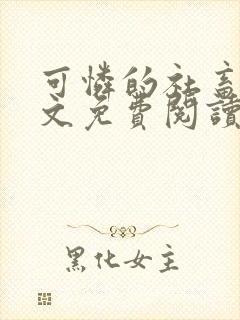 可憐的社畜
文免費閱讀
黑化女主